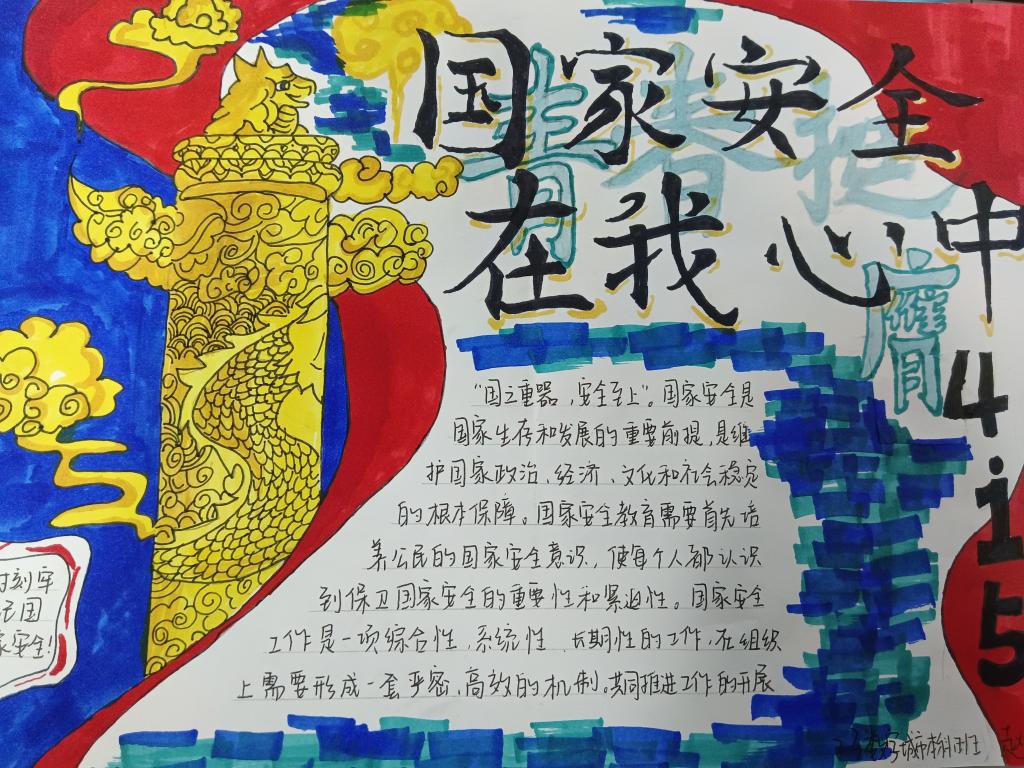 国家安全
在我心中
青春挺膺
4.15
“国之重器，安全至上”。国家安全是
国家生存和发展的重要前提，是维
护国家政治、经济、文化和社会稳定
的根本保障。国家安全教育需要首先培
养公民的国家安全意识，使每个人都认识
到保卫国家安全的重要性和紧迫性。国家安全
工作是一项综合性，系统性、长期性的工作，在组织
上需要形成一套严密、高效的机制。共同推进工作的开展
时刻牢
记国
家安全！
城市 班 赵